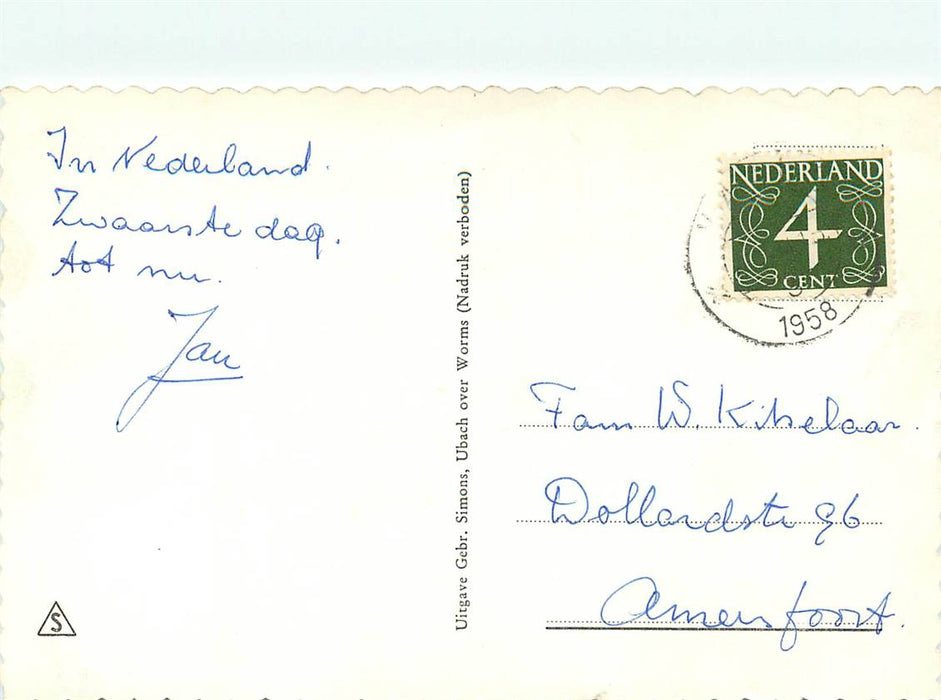 In Nederland.
Zwaarste dag.
tot nu.
Jan
S
Uitgave Gebr. Simons, Ubach over Worms (Nadruk verboden)
NEDERLAND
4
CENT
1958
Fam W. Kitselaar.
Dollardstr 96
Amersfoort.